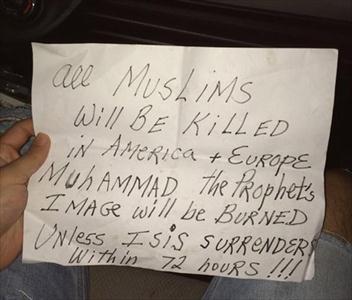 all MUSLiMS
Will BE KiLLED
in AMERICA + EUROPE
MUhAMMAD the PROPhET's
IMAGE will be BURNED
UNLESS ISiS SURRENDERS
Within 72 hOURS !!!